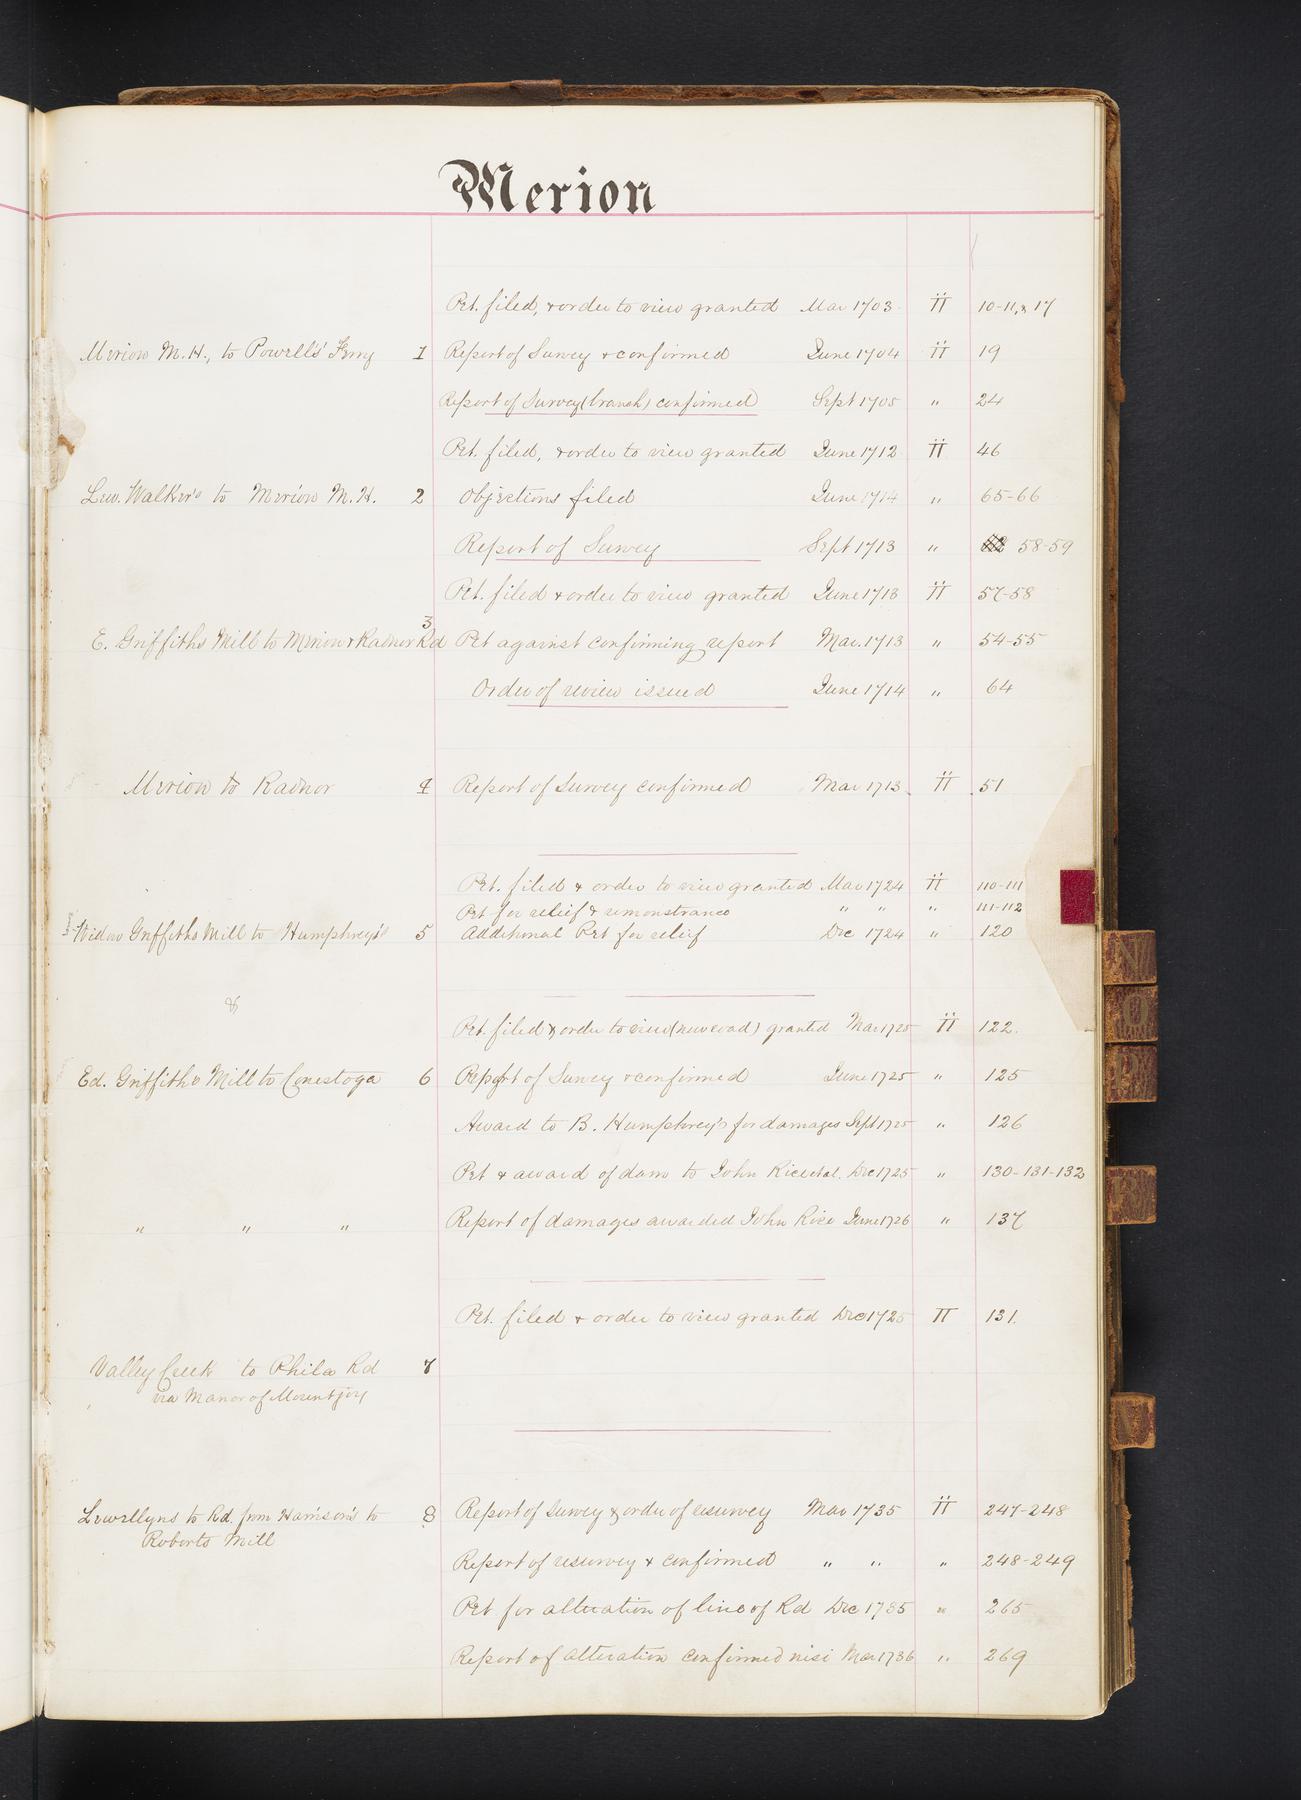 Merion
Pet. filed, & order to view granted Mar 1703 II 10-11, & 17
Merion M.H., to Powell's Ferry 1 Report of Survey & confirmed June 1704 II 19
Report of Survey (branch) confirmed Sept 1705 " 24
Pet. filed, & order to view granted June 1712 II 46
Lew. Walker's to Merion M.H. 2 Objections filed June 1714 " 65-66
Report of Survey Sept 1713 " 58-59
Pet. filed & order to view granted June 1713 II 57-58
E. Griffiths Mill to Merion & Radnor Rd 3 Pet against confirming report Mar. 1713 " 54-55
Order of review issued June 1714 " 64
Merion to Radnor 4 Report of Survey confirmed Mar 1713 II 51
Pet. filed & order to view granted Mar 1724 II 110-111
Pet for relief & remonstrance " " " 111-112
Widow Griffiths Mill to Humphrey's 5 Additional Pet for relief Dec 1724 " 120
&
Pet. filed & order to view (new road) granted Mar 1725 II 122.
Ed. Griffiths Mill to Conestoga 6 Report of Survey & confirmed June 1725 " 125
Award to B. Humphrey's for damages Sept 1725 " 126
Pet & award of dam to John Rice et al. Dec 1725 " 130-131-132
" " " Report of damages awarded John Rice June 1726 " 137
Pet. filed & order to view granted Dec 1725 II 131.
Valley Creek to Phila Rd 7
via Manor of Mountjoy
Lewellyns to Rd. from Harrison's to 8 Report of Survey & order of resurvey Mar 1735 II 247-248
Roberts Mill
Report of resurvey & confirmed " " " 248-249
Pet for alteration of line of Rd Dec 1735 " 265
Report of alteration confirmed nisi Mar 1736 " 269
N
O
P
R
V